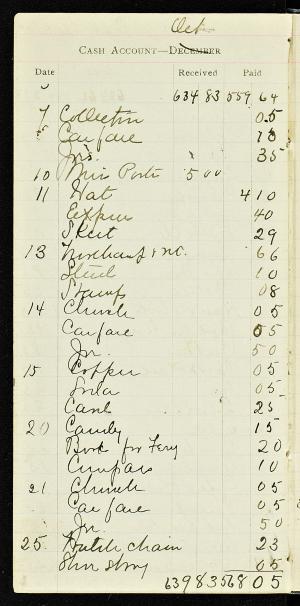 Oct
CASH ACCOUNT—DECEMBER
Date Received Paid
634 83 559 64
7 Collection 05
Car fare 10
35
10 Miss Porter 5 00
11 Hat 4 10
Express 40
Skirt 29
13 66
10
Stamps 08
14 Church 05
Car fare 05
Jr. 50
15 Copper 05
Soda 05
Cash 25
20 Candy 15
Book for Ferry 20
Compass 10
21 Church 05
Car fare 05
Jr. 50
25 Watch chain 23
Shoe string 05
639 83 568 05